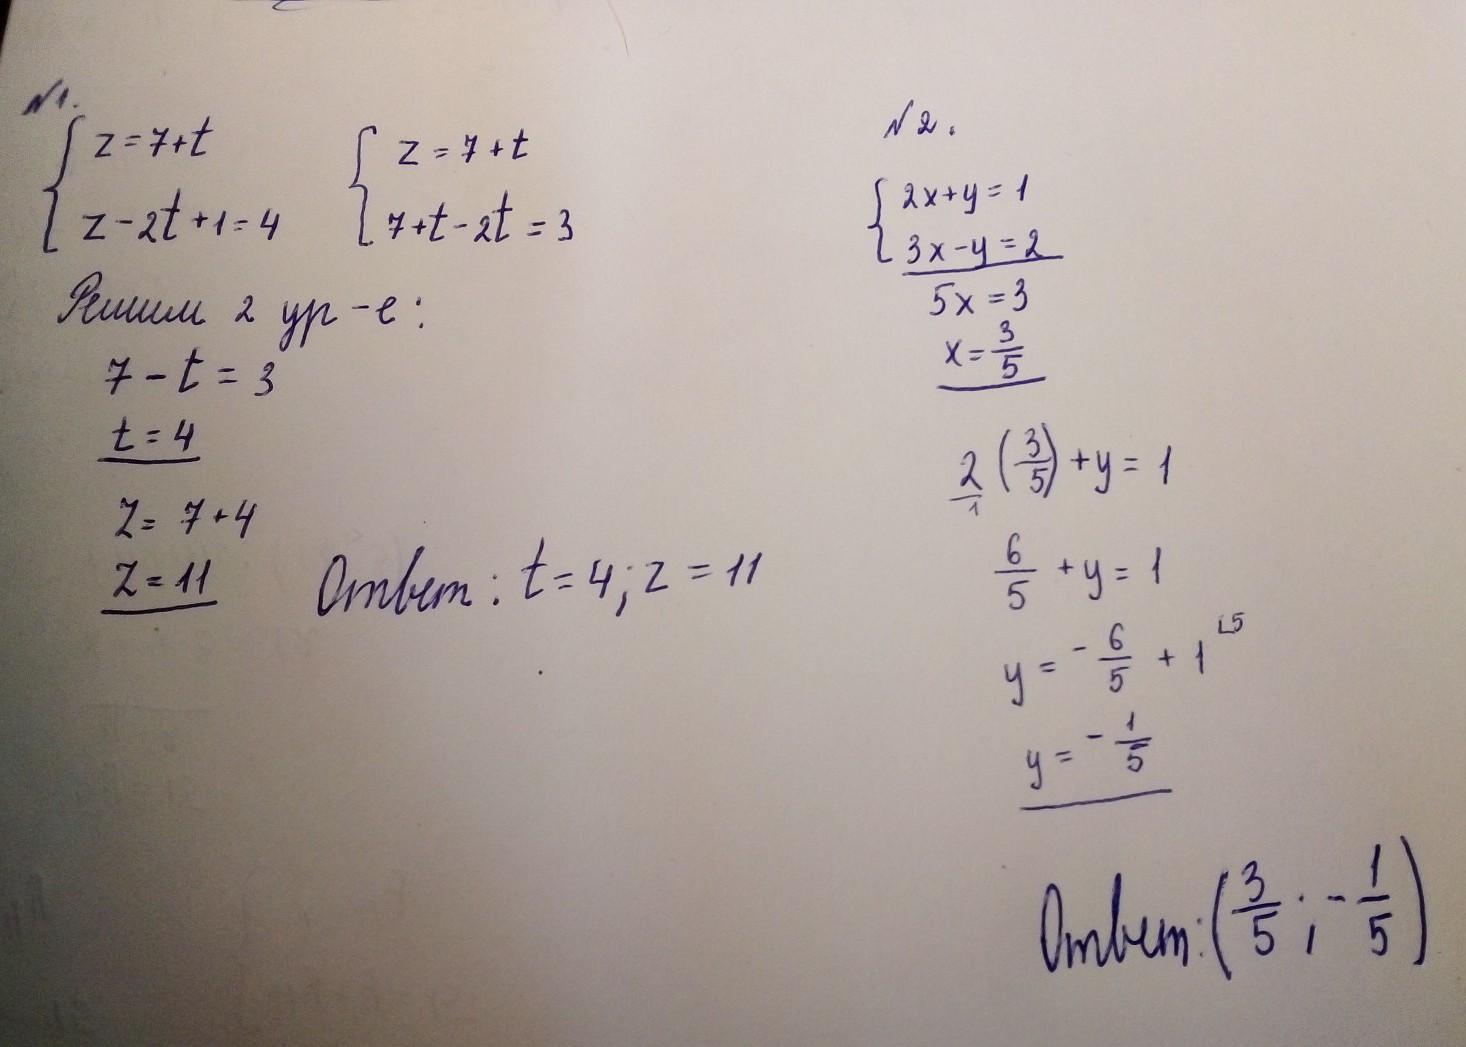 №1.
{ z = 7+t
z - 2t + 1 = 4
{ z = 7 + t
7 + t - 2t = 3
Решим 2 ур-е:
7 - t = 3
t = 4
z = 7 + 4
z = 11
Ответ: t = 4; z = 11
№2.
{ 2x + y = 1
3x - y = 2
5x = 3
x = 3/5
2/1 (3/5) + y = 1
6/5 + y = 1
y = - 6/5 + 1 ⌊5
y = - 1/5
Ответ: (3/5 ; - 1/5)